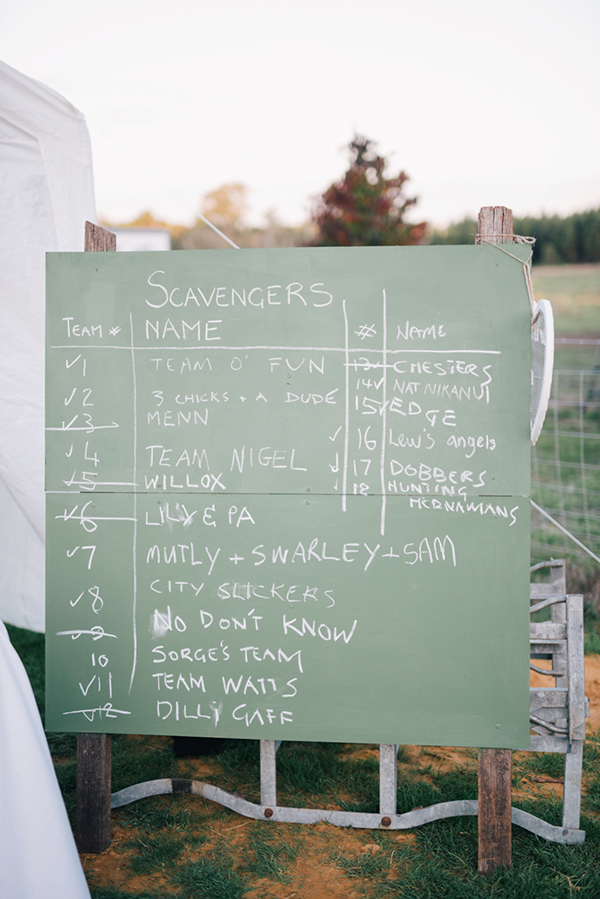 SCAVENGERS
TEAM # NAME
✓1 TEAM O' FUN
✓2 3 CHICKS + A DUDE
✓3 MENN
✓4 TEAM NIGEL
✓5 WILLOX
✓6 LILY & PA
✓7 MUTLY + SWARLEY + SAM
✓8 CITY SLICKERS
✓9 NO DON'T KNOW
10 SORGE'S TEAM
✓11 TEAM WATTS
✓12 DILLY GAFF
# NAME
13 CHESTERS
14✓ NAT NIKANUI
15✓ EDGE
✓ 16 Lew's angels
✓ 17 DOBBERS
✓ 18 HUNTING
MEDNAWMANS